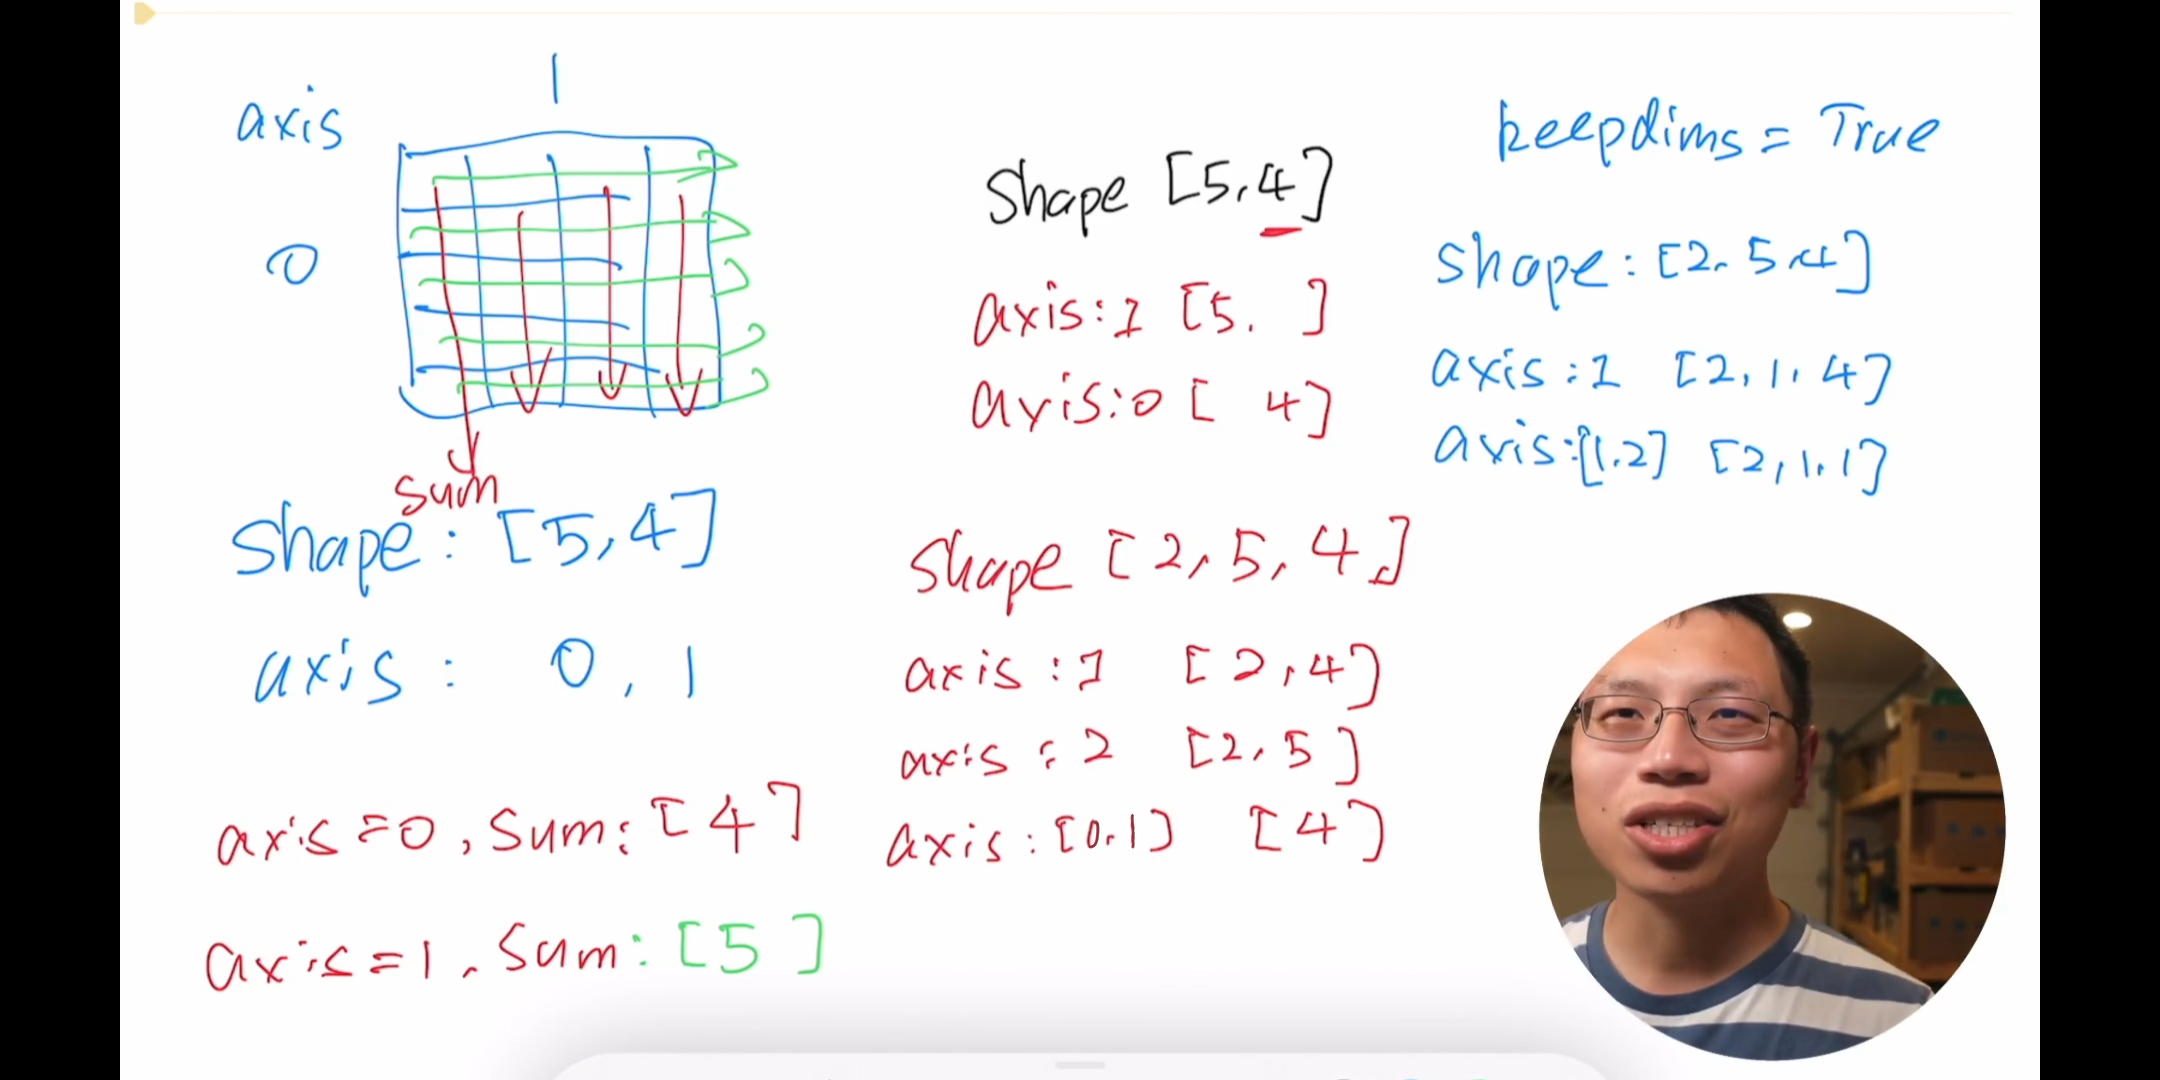 axis
1
0
sum
shape: [5,4]
axis: 0, 1
axis=0, sum: [4]
axis=1, sum: [5 ]
shape [5,4]
axis:1 [5, ]
axis:0 [ 4]
shape [2,5,4]
axis:1 [2,4]
axis:2 [2,5]
axis:[0,1] [4]
keepdims = True
shape: [2,5,4]
axis:1 [2,1,4]
axis:[1,2] [2,1,1]